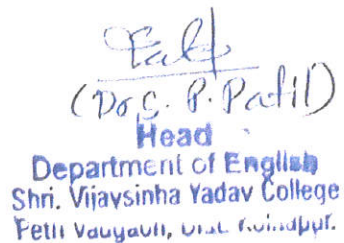 (Dr. C. P. Patil)
Head
Department of English
Shri. Vijaysinha Yadav College
Peth Vadgaon, Dist. Kolhapur.